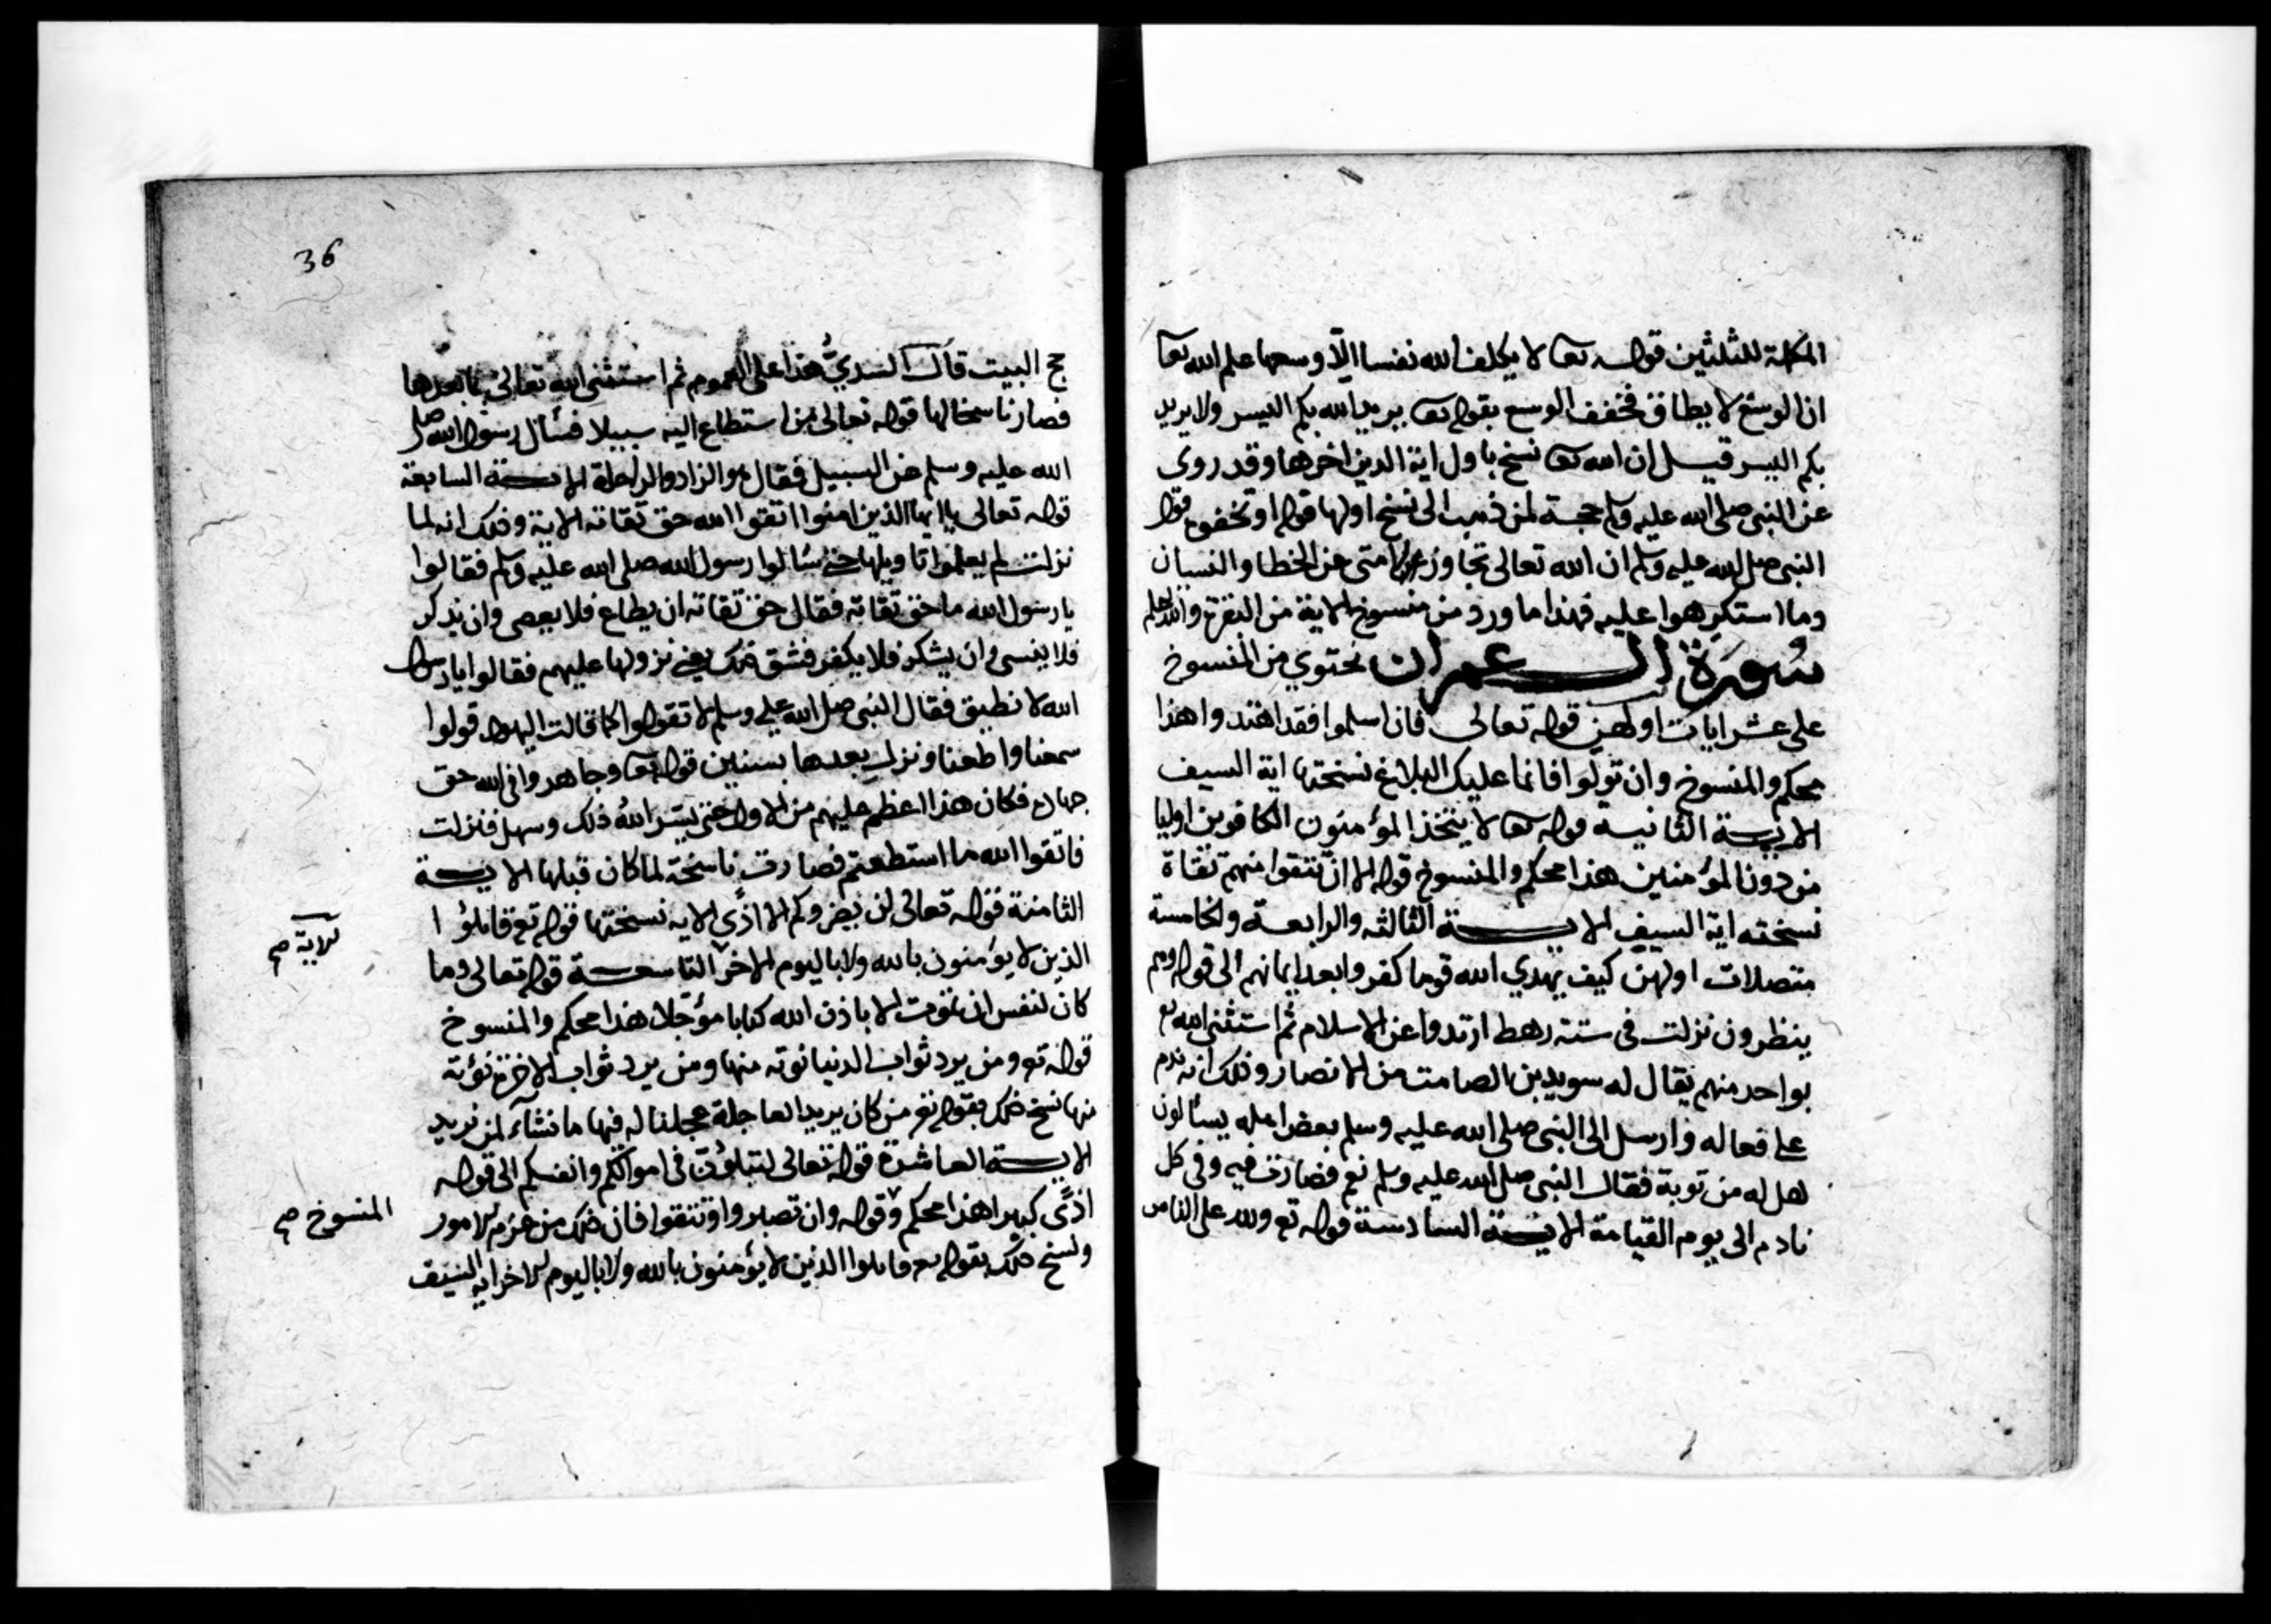 المكملة للثلثين قوله تعا لا يكلف الله نفسا الّا وسعها علم الله تعا
ان الوسع لا يطاق فخفف الوسع بقوله تعا يريد الله بكم اليسر ولا يريد
بكم اليسر قيل ان الله تعا نسخ باول اية الدين اخرها وقد روى
عن النبي صلى الله عليه وسلم حجة لمن ذهب الى نسخ اولها قوله او تخفوه فقال
النبي صلى الله عليه وسلم ان الله تعالى تجاوز عن امتى عن الخطا والنسيان
وما استكرهوا عليه فهذا ما ورد من منسوخ الاية من البقرة والله اعلم
سورة ال عمران تحتوي من المنسوخ
على عشر ايات اولهن قوله تعالى فان اسلموا فقد اهتدوا هذا
محكم والمنسوخ وان تولوا فانما عليك البلاغ نسختها اية السيف
الاية الثانية قوله تعا لا يتخذ المؤمنون الكافرين اوليا
من دون المؤمنين هذا محكم والمنسوخ قوله الا ان تتقوا منهم تقاة
نسخته اية السيف الاية الثالثه والرابعة والخامسة
متصلات اولهن كيف يهدي الله قوما كفروا بعد ايمانهم الى قوله ولاهم
ينظرون نزلت في ستة رهط ارتدوا عن الاسلام ثم استثنى الله تع
بواحد منهم يقال له سويد بن الصامت من الانصار وذلك انه ندم
على فعاله وارسل الى النبي صلى الله عليه وسلم بعض اهله يسألون
هل له من توبة فقال النبي صلى الله عليه وسلم نعم فصارت فيه وفي كل
نادم الى يوم القيامة الاية السادسة قوله تع ولله على الناس
36
حج البيت قال السدي هذا على العموم ثم استثنى الله تعالى بما بعدها
فصار ناسخا لها قوله تعالى من استطاع اليه سبيلا فسأل رسول الله صلى
الله عليه وسلم عن السبيل فقال هو الزاد والراحلة الاية السابعة
قوله تعالى يا ايها الذين امنوا اتقوا الله حق تقاته الاية وذلك انه لما
نزلت لم يعلموا تاويلها حتى سألوا رسول الله صلى الله عليه وسلم فقالوا
يا رسول الله ما حق تقاته فقال حق تقاته ان يطاع فلا يعصى وان يذكر
فلا ينسى وان يشكر فلا يكفر فشق ذلك يعني نزولها عليهم فقالوا يا رسول
الله لا نطيق فقال النبي صلى الله عليه وسلم لا تقولوا كما قالت اليهود قولوا
سمعنا واطعنا ونزلت بعدها بسنين قوله تعا وجاهدوا في الله حق
جهاده فكان هذا اعظم عليهم من الاول حتى يسّر الله ذلك وسهل فنزلت
فاتقوا الله ما استطعتم فصارت ناسخة لما كان قبلها الاية
الثامنة قوله تعالى لن يضروكم الا اذًى الايه نسختها قوله تع قاتلوا
الذين لا يؤمنون بالله ولا باليوم الاخر التاسعة قوله تعالى وما
الاية صح
كان لنفس ان تموت الا باذن الله كتابا مؤجلا هذا محكم والمنسوخ
قوله تع ومن يرد ثواب الدنيا نوته منها ومن يرد ثواب الاخرة نؤته
منها نسخ ذلك بقوله تع من كان يريد العاجلة عجلنا له فيها ما نشآء لمن نريد
الاية العاشرة قوله تعالى لتبلون في اموالكم وانفسكم الى قوله
اذًى كبيرا هذا محكم وقوله وان تصبروا وتتقوا فان ذلك من عزم الامور
المنسوخ صح
ونسخ ذلك بقوله تع قاتلوا الذين لا يؤمنون بالله ولا باليوم الاخر اية السيف